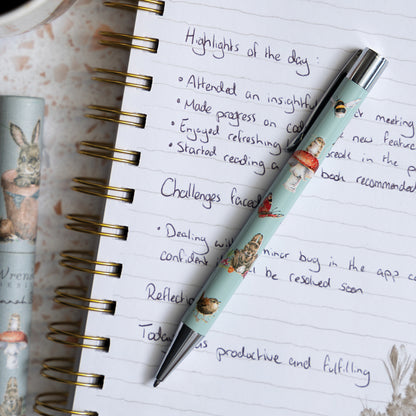 Highlights of the day:
• Attended an insightful meeting
• Made progress on co new feature
• Enjoyed refreshing break in the p
• Started reading a book recommended
Challenges faced
• Dealing with minor bug in the app co
confident be resolved soon
Reflecti
Today was productive and fulfilling
Wren
DESI
nnah